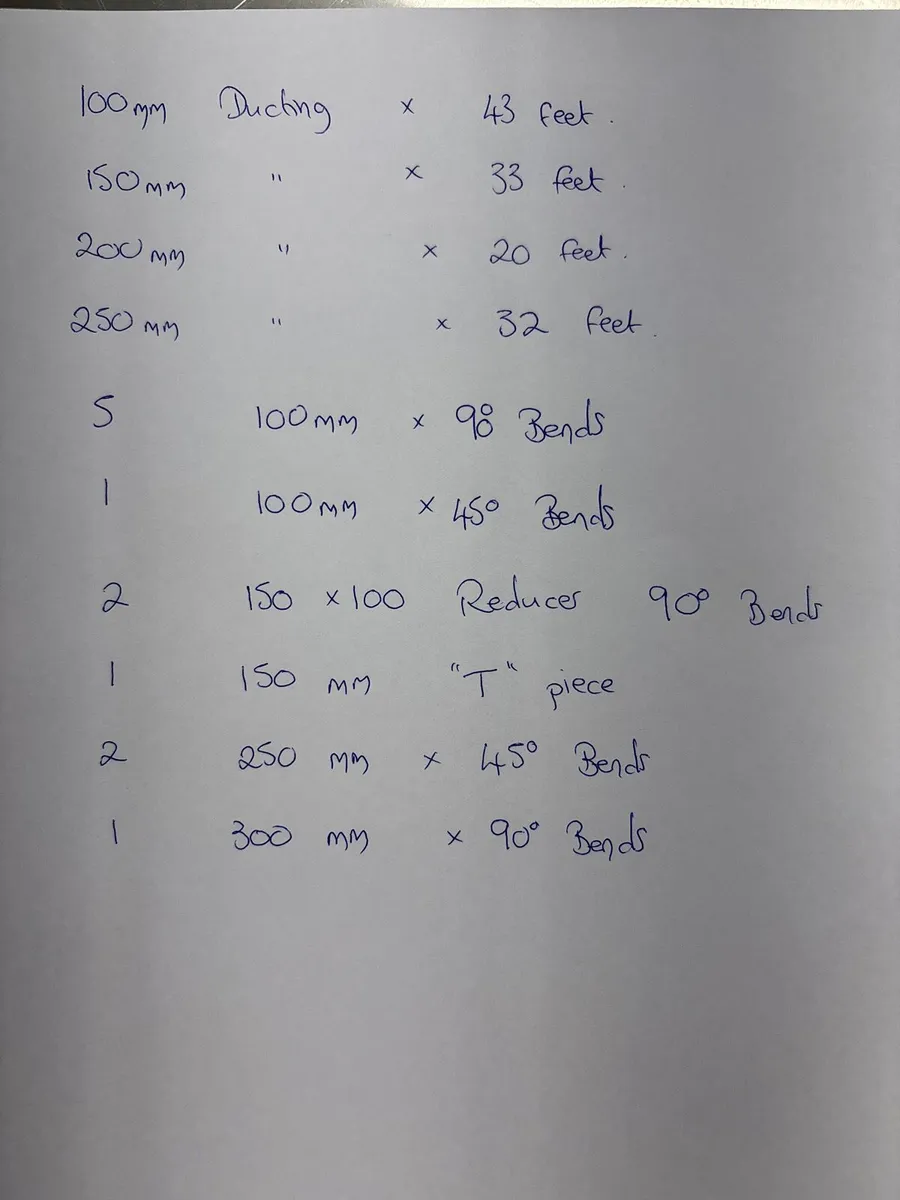 100mm Ducting x 43 feet.
150mm " x 33 feet.
200mm " x 20 feet.
250mm " x 32 feet.
5 100mm x 90° Bends
1 100mm x 45° Bends
2 150 x100 Reducer 90° Bends
1 150 mm "T" piece
2 250 mm x 45° Bends
1 300 mm x 90° Bends